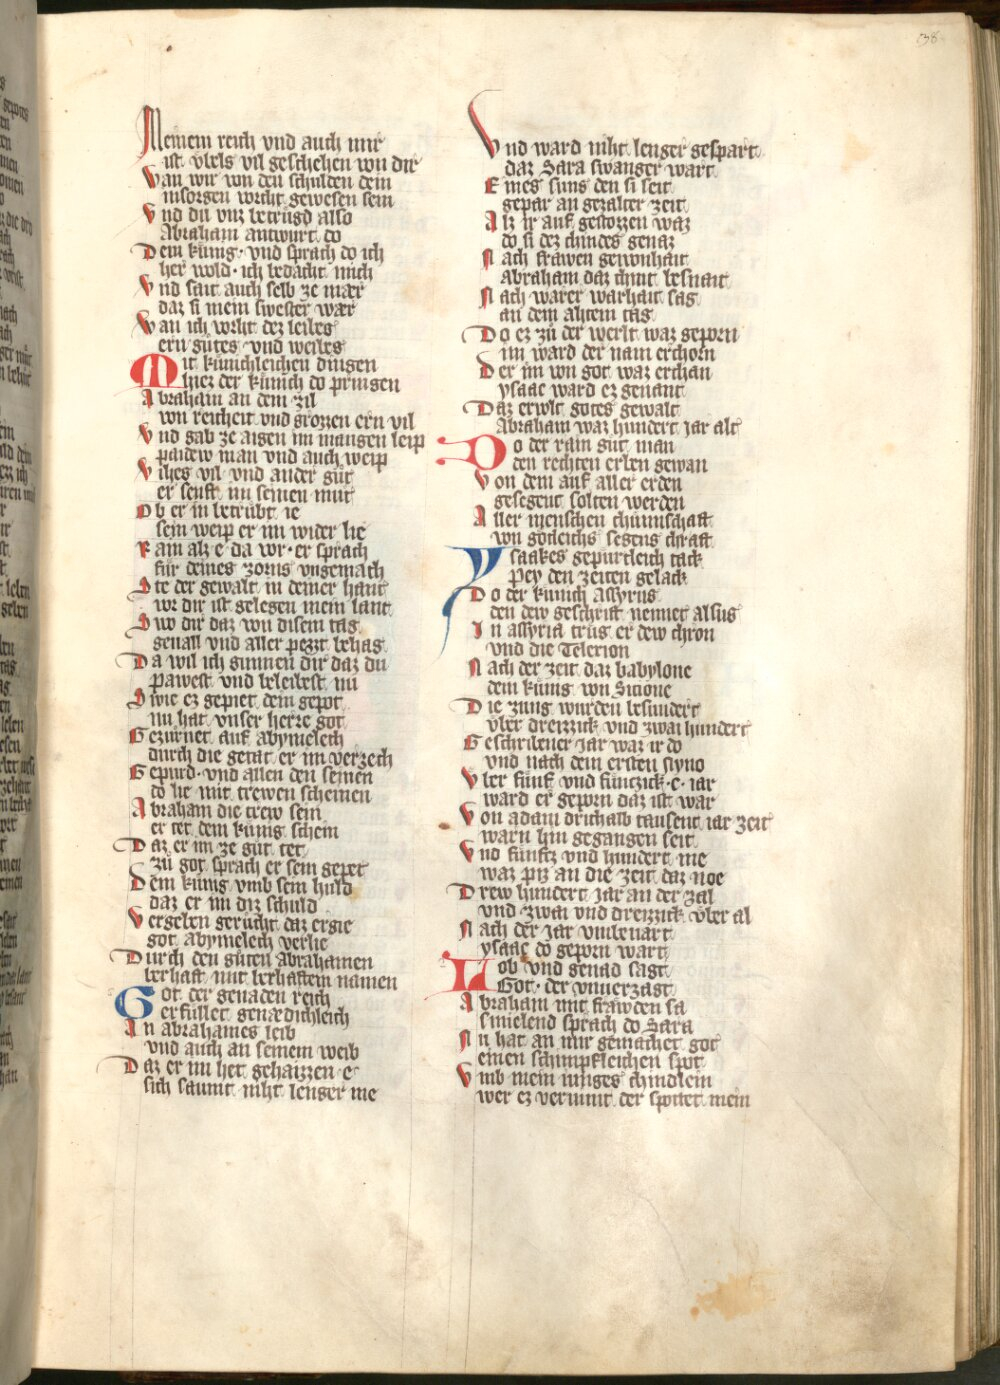 38
Meinem reich vnd auch mir
ist vbels vil geschehen von dir
Van wir von den schulden dein
in sorgen vorcht gewesen sein
Vnd du vnz betrugd also
Abraham antwurt do
Dem kunig · vnd sprach do ich
her wold · ich bedacht mich
Vnd sait auch selb ze mær
daz si mein swester wær
Van ich vorht dez leibes
ern gutes vnd weibes
Mit kunchleichen dingen
hiez der kunich do pringen
Abraham an dem zil
von reicheit vnd grozzen ern vil
Vnd gab ze aigen im mangen leip
paidew man vnd auch weip
Vihes vil vnd ander gut
er senft im seinen mut
Ob er in betrubt ie
sein weip er im wider lie
Rain alz e da vor · er sprach
fur deines zorns vngemach
Ste der gewalt in deiner hant
vor dir ist gelegen mein lant
Swo dir daz von disem tag
genall und aller pezzt behag
Da wil ich gunnen dir daz du
pawest vnd beleibest nu
Swie ez gepiet dein gepot
nu hat vnser herre got
Gezurnet auf abymelech
durch die getat er im verzech
Gepurd · vnd allen den seinen
do lie mit trewen scheinen
Abraham die trew sein
er tet dem kunig schein
Daz er im ze gut tet
zu got sprach er sein gepet
Dem kunig vmb sein huld
daz er im diz schuld
Vergeben gerucht daz ergie
got abymelech verlie
Durch den guten Abrahamen
berhaft mit berhaftem namen
Got der genaden reich
erfullet genædichleich
An abrahames leib
vnd auch an seinem weib
Daz er im het gehaizzen e
sich saumt niht lenger me
Vnd ward niht lenger gespart
daz Sara swanger wart
Eines suns den si seit
gepar an gezalter zeit
Alz ir auf gestozzen waz
do si dez chindes genaz
Nach frawen gewonhait
Abraham daz chint besnait
Nach warer warhait sag
an dem ahtem tag
Do ez zu der werlt waz geporn
im ward der nam erchorn
Der im von got waz erchan
ysaac ward ez genant
Daz erwlt gotes gewalt
Abraham waz hundert jar alt
Do der rain gut man
den rechten erben gewan
Von dem auf aller erden
gesegent solten werden
Aller menschen chunnschaft
von gotleichs segens chraft
Ysaakes gepurtleich tack
Pey den zeiten gelack
Do der kunich Assyrus
den dew geschrift nennet alsus
In assyria trug er dew chron
vnd die Telexion
Nach der zeit daz babylone
dem kunig von Sicione
Die zung wurden besundert
vber dreizzick vnd zwai hundert
Geschribener jar waz ir do
vnd nach dem ersten siyno
Vber funf vnd funczick · e · iar
ward er geporn daz ist war
Von adam drichalb tausent iar zeit
warn hin gegangen seit
Vnd funfcz vnd hundert me
waz piz an die zeit daz noe
Drew hundert jar an der zal
vnd zwai vnd dreizzick vber al
Nach der jar
ysaac do geporn wart
Lob vnd genad sagt
Got · der vnuerzagt
Abraham mit frawden sa
smielend sprach do Sara
Nu hat an mir gemachet got
einen schimpfleichen spot
Vmb mein iunges chindlein
wer ez vernimt der spottet mein